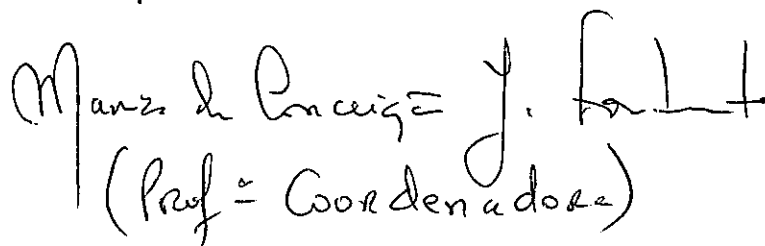 Maria da Conceição J.
(Profª Coordenadora)